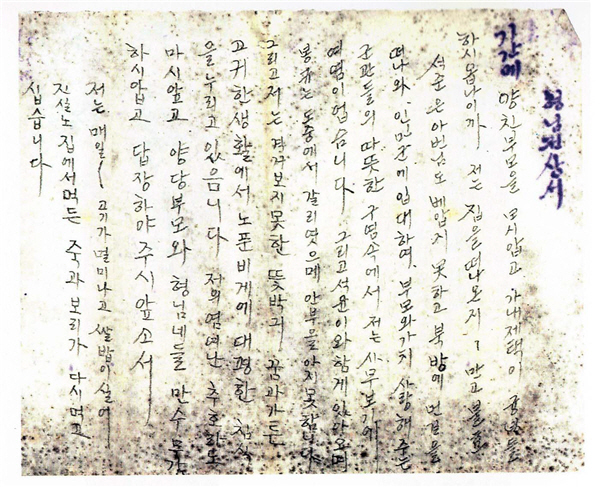 형님전상서
기간에 양친부모을 모시압고 가내제택이 균녕들
하시옵나이까 저는 집을떠나온지 만고불효
석준은 아번님도 베압지 못하고 북방에 먼길을
떠나와 인민군에입대하여 부모와가치 사랑해주는
군관들의 따뜻한 구영속에서 저는 사무보기에
여염이업습니다 그리고석윤이와 함께 있아오며
봉규는 도중에서 갈리엿으메 안부를 아지못함니다
그리고 저는 격거보지못한 뜻박긔 꿈과가튼
고귀한생활에서 노푼비게에 대평한 침식
을누리고 있음니다 저의 염녀난 추호하도
마시압고 양당부모와 형님네들 만수무강
하시압고 답장하야 주시압소서
저는 매일 고기가 멀미나고 쌀밥이 실어
진실노 집에서먹든 죽과 보리가 다시먹고
십습니다